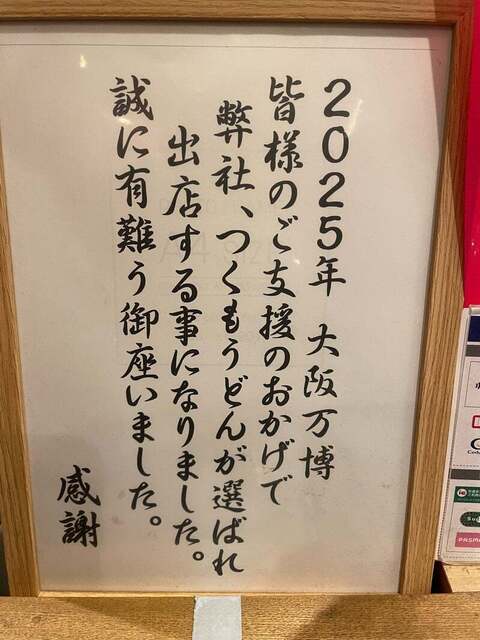 2025年 大阪万博
皆様のご支援のおかげで
弊社、つくもうどんが選ばれ
出店する事になりました。
誠に有難う御座いました。
感謝